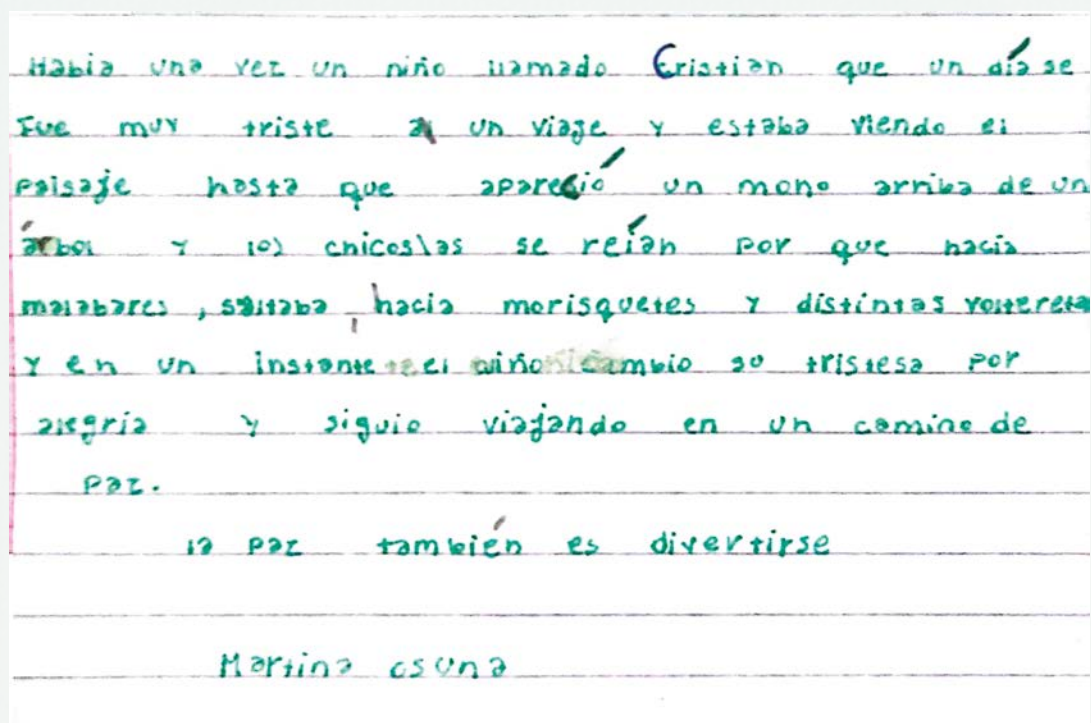 Habia una vez un niño llamado Cristian que un día se
Fue muy triste a un viage y estaba viendo el
paisaje hasta que apareció un mono arriba de un
árbol y los chicos\as se reían por que hacia
malabares, saltaba, hacia morisquetes y distintas volteretas
y en un instante el niño cambio su tristesa por
alegria y siguio viajando en un camino de
paz.
la paz también es divertirse
Martina osuna